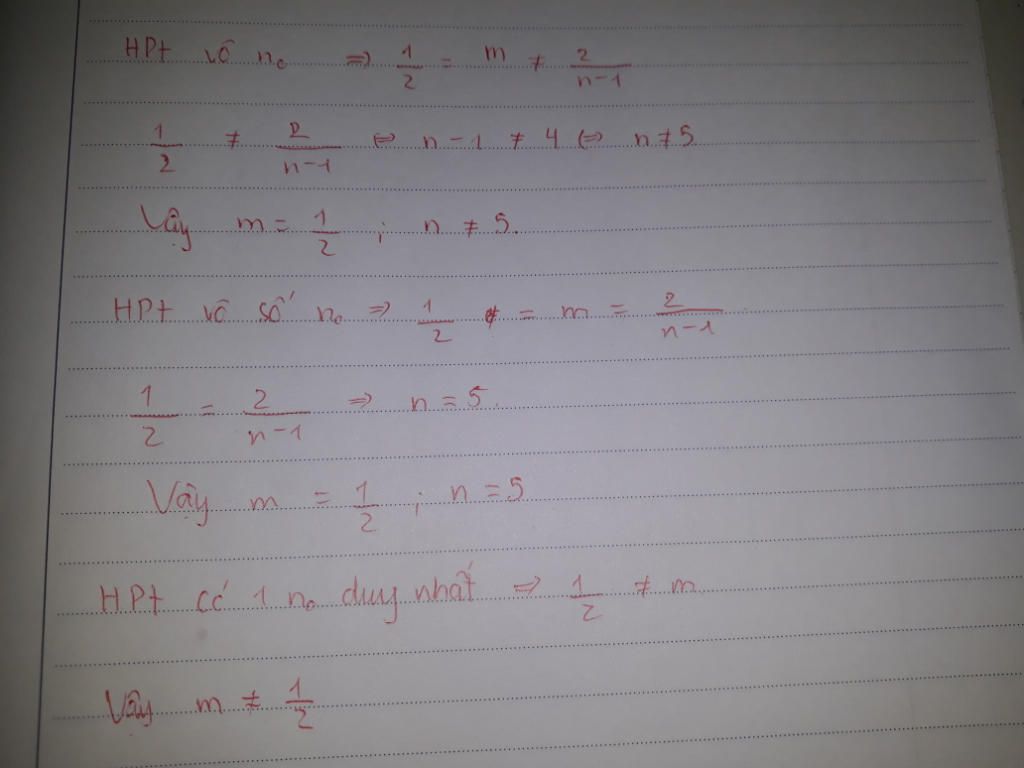 HPt vô no ⇒ 1/2 = m ≠ 2/(n-1)
1/2 ≠ 2/(n-1) ⇔ n-1 ≠ 4 ⇔ n ≠ 5
Vậy m = 1/2 ; n ≠ 5.
HPt vô số no ⇒ 1/2 = m = 2/(n-1)
1/2 = 2/(n-1) ⇒ n = 5.
Vậy m = 1/2 ; n = 5
HPt có 1 no duy nhất ⇒ 1/2 ≠ m
Vậy m ≠ 1/2